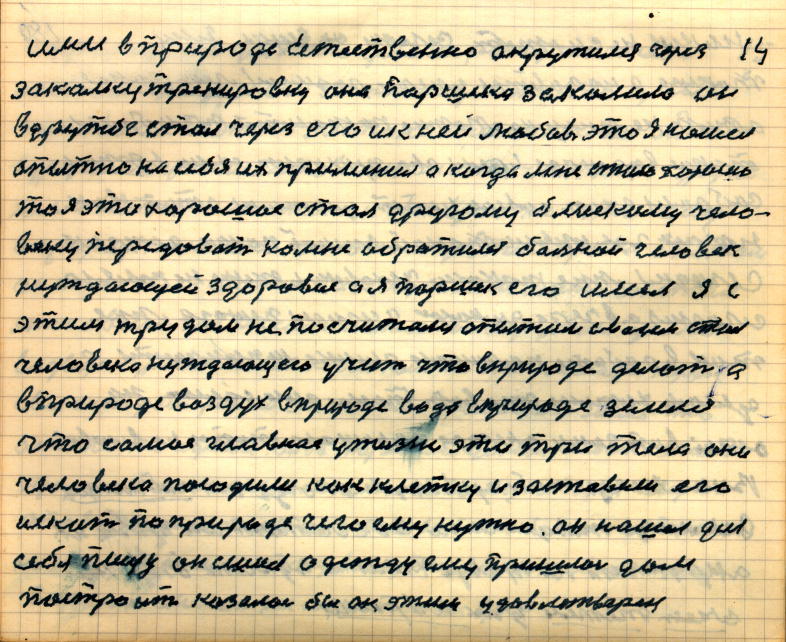 ими в природе естественно окружился через 14
закалку тренировку она Паршека закалила он
вдруг стал через его ик ней любов. это я нашел
опытно на себя их применил а когда мне стало хорошо
то я это хорошое стал другому близкому чело-
веку передоват комне обратился болной человек
нуждающей здоровие а я Паршек его имел я с
этим трудом не посчитался опытом своем стал
человека нуждающего учит что вприроде делат, а
вприроде воздух вприроде вода вприроде земля
что самое главное ужизни эти три тела они
человека посадили как клетку и заставили его
искат по природе чего ему нужно. он нашел для
себя пищу он сшил одежду ему пришлос дом
построит казалос бы он этим удовлотварен